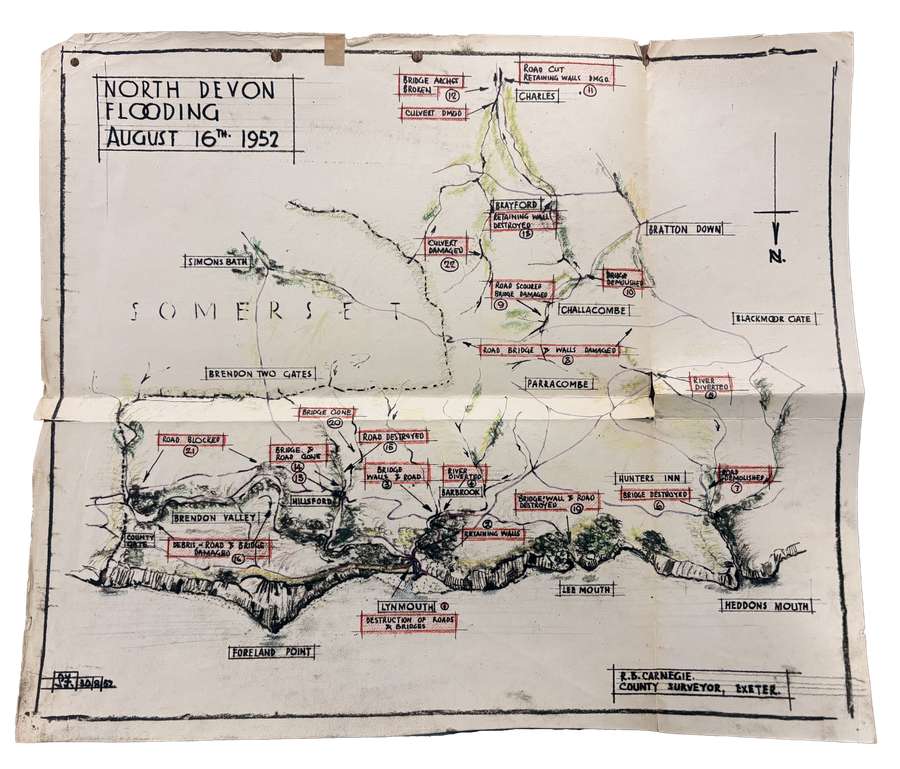 NORTH DEVON
FLOODING
AUGUST 16TH. 1952
BRIDGE ARCHES
BROKEN 12
CULVERT DMGD
ROAD CUT
RETAINING WALLS DMGD.
11
CHARLES
BRAYFORD
RETAINING WALL
DESTROYED
13
BRATTON DOWN
N.
CULVERT
DAMAGED
22
SIMONSBATH
ROAD SCOURED
BRIDGE DAMAGED
9
BRIDGE
DEMOLISHED
10
CHALLACOMBE
BLACKMOOR GATE
SOMERSET
ROAD BRIDGE & WALLS DAMAGED
8
BRENDON TWO GATES
PARRACOMBE
RIVER
DIVERTED
BRIDGE GONE
20
ROAD BLOCKED
21
ROAD DESTROYED
BRIDGE &
ROAD GONE
14
15
BRIDGE
WALLS & ROAD
3
RIVER
DIVERTED
4
BARBROOK
HILLSFORD
HUNTERS INN
ROAD
DEMOLISHED
7
BRIDGE DESTROYED
6
BRIDGE WALL & ROAD
DESTROYED 19
BRENDON VALLEY
2
RETAINING WALLS
COUNTY
GATE
DEBRIS - ROAD & BRIDGE
DAMAGED
16
LEE MOUTH
LYNMOUTH 1
DESTRUCTION OF ROADS
& BRIDGES
HEDDONS MOUTH
FORELAND POINT
R.B. CARNEGIE.
COUNTY SURVEYOR, EXETER.
30/8/52.